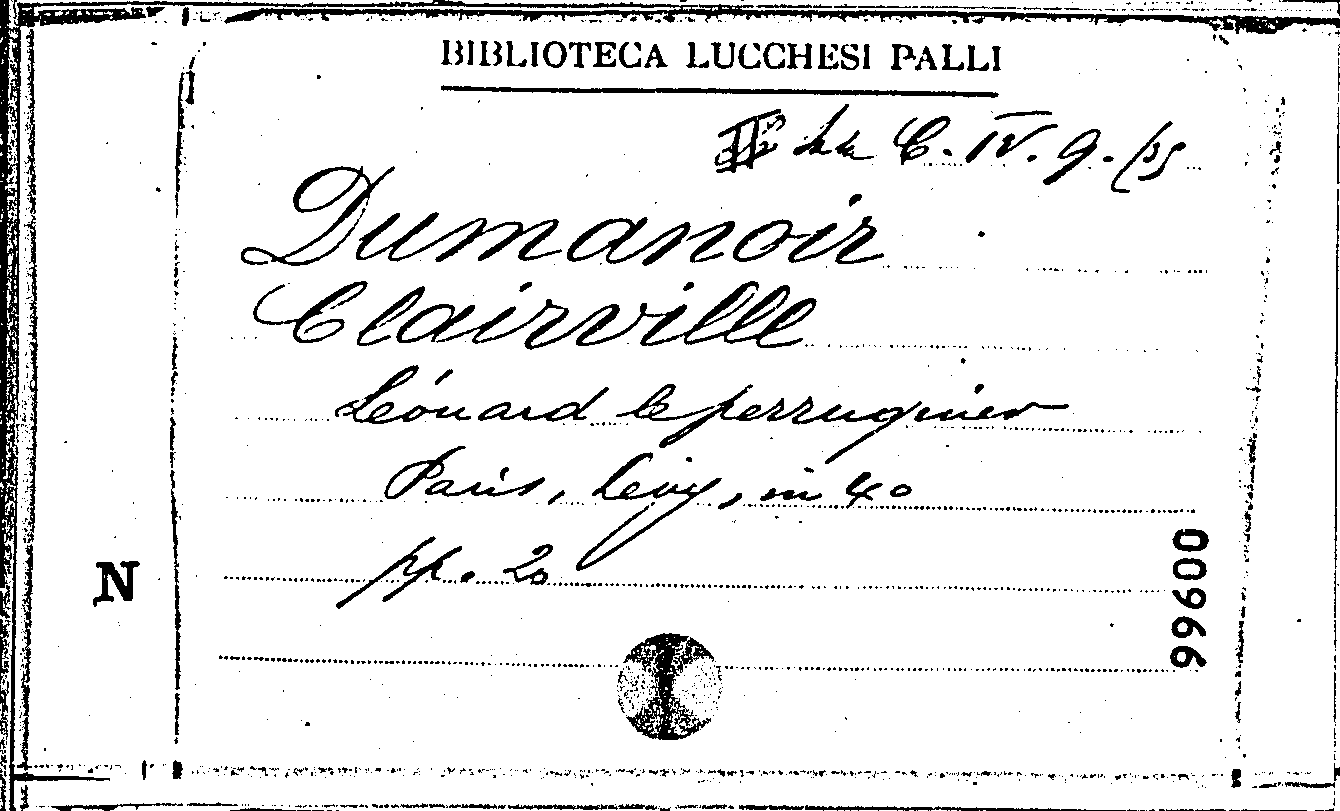 BIBLIOTECA LUCCHESI PALLI
C. IV. 9. (25
Dumanoir
Clairville
Léonard le perruquier
Paris, Levy, in 4º
pp. 20
N
00966